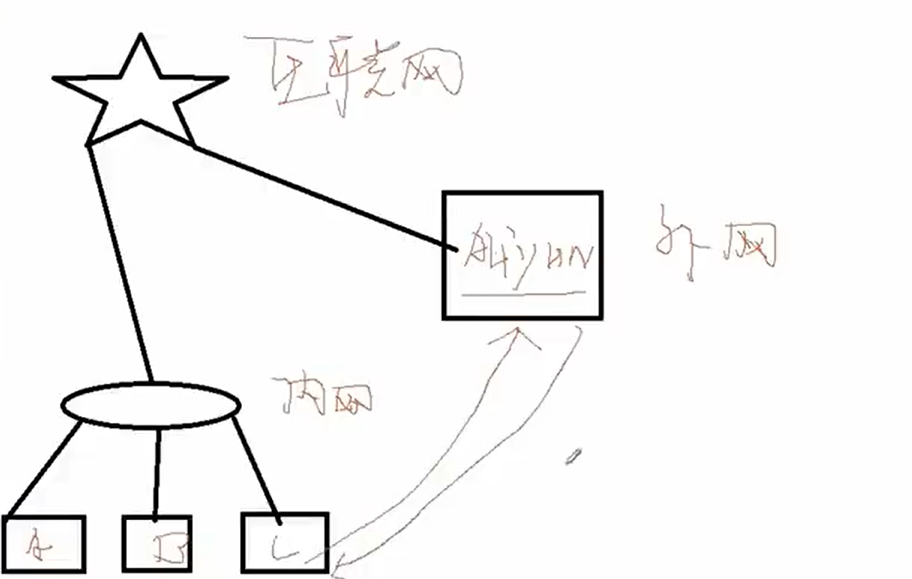 互联网
aliyun
外网
内网
A
B
C